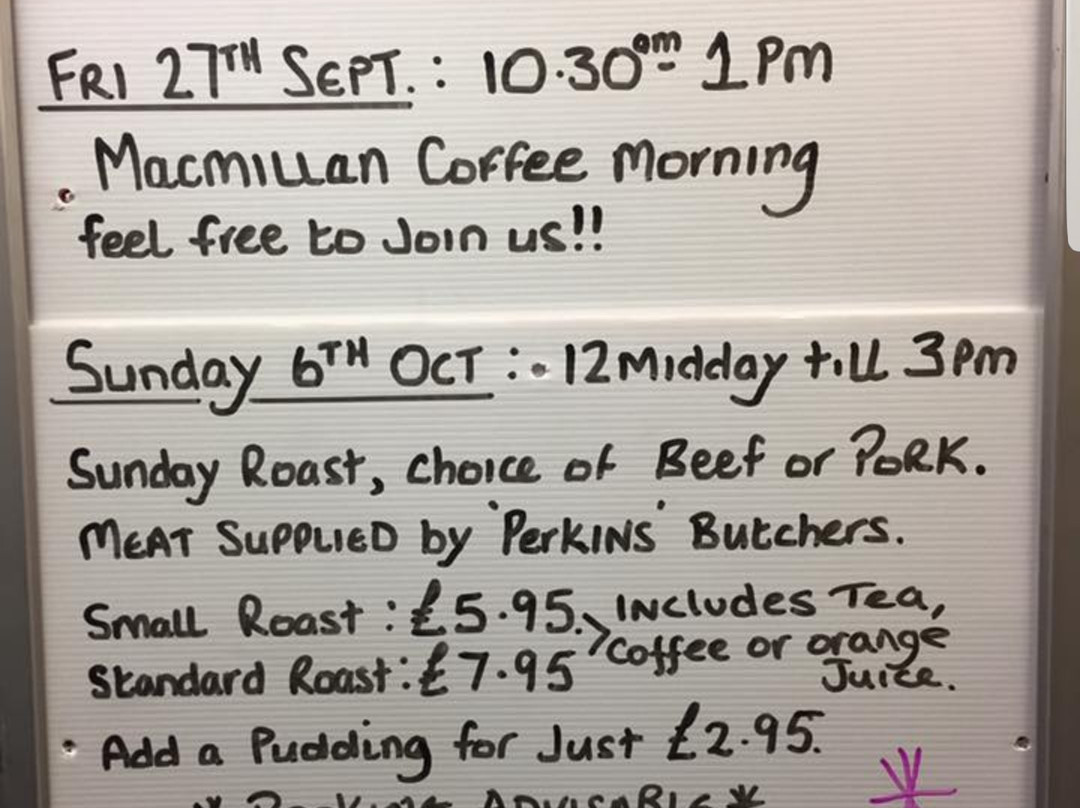 FRI 27TH SEPT. : 10·30am- 1Pm
Macmillan Coffee Morning
feel free to Join us!!
Sunday 6TH OCT : 12 Midday till 3pm
Sunday Roast, choice of Beef or PORK.
MEAT SUPPLIED by 'PERKINS' Butchers.
Small Roast : £5·95. INCLUDES Tea,
Coffee or orange
Standard Roast : £7·95 Juice.
Add a Pudding for Just £2·95.
* Booking ADVISABLE *